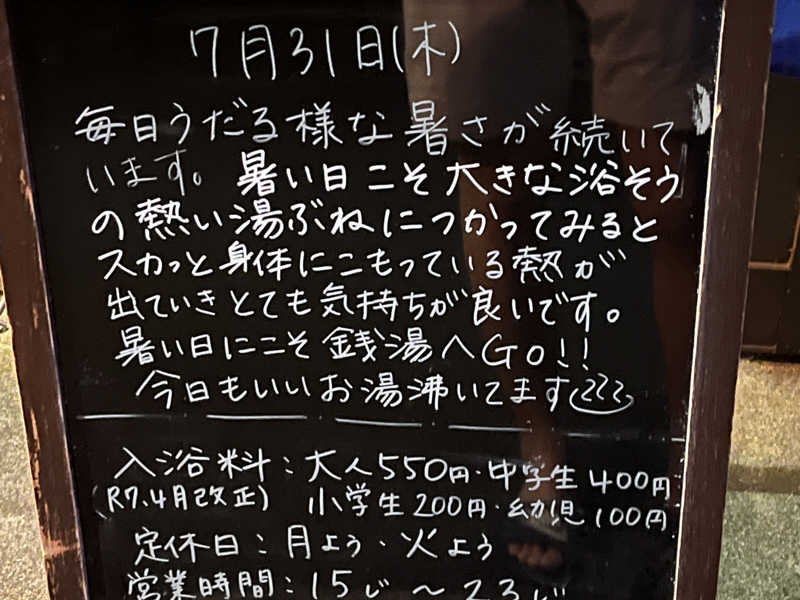 7月31日(木)
毎日うだる様な暑さが続いて
います。暑い日こそ大きな浴そう
の熱い湯ぶねにつかってみると
スカッと身体にこもっている熱が
出ていきとても気持ちが良いです。
暑い日にこそ銭湯へGO!!
今日もいいお湯沸いてます
入浴料:大人550円・中学生400円
(R7.4月改正) 小学生200円・幼児100円
定休日:月よう・火よう
営業時間:15じ〜23じ